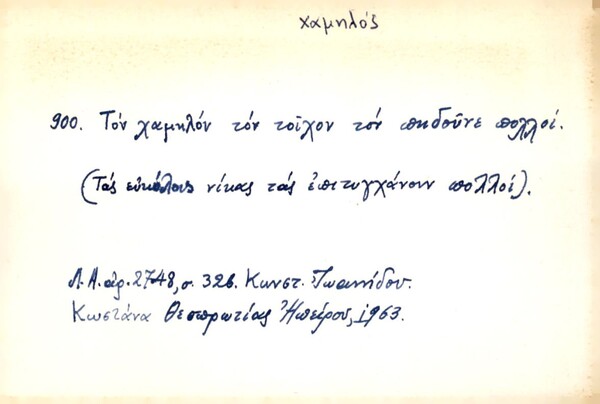 χαμηλός
900. Τόν χαμηλόν τόν τοῖχον τόν πηδοῦνε πολλοί.
(Τάς εὐκόλους νίκας τάς ἐπιτυγχάνουν πολλοί).
Λ.Α. ἀρ. 2748, σ. 326. Κωνστ. Ἰωαννίδου.
Κωστάνα Θεσπρωτίας Ἠπείρου, 1963.